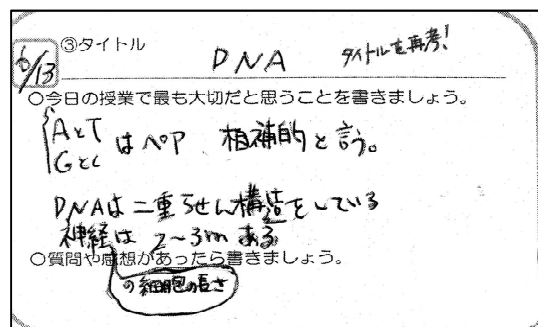 6/13 ③タイトル DNA タイトルを再考!
○今日の授業で最も大切だと思うことを書きましょう。
AとT
GとC はペア 相補的と言う。
DNAは二重らせん構造をしている
神経は2〜3mある
○質問や感想があったら書きましょう。
の細胞の長さ